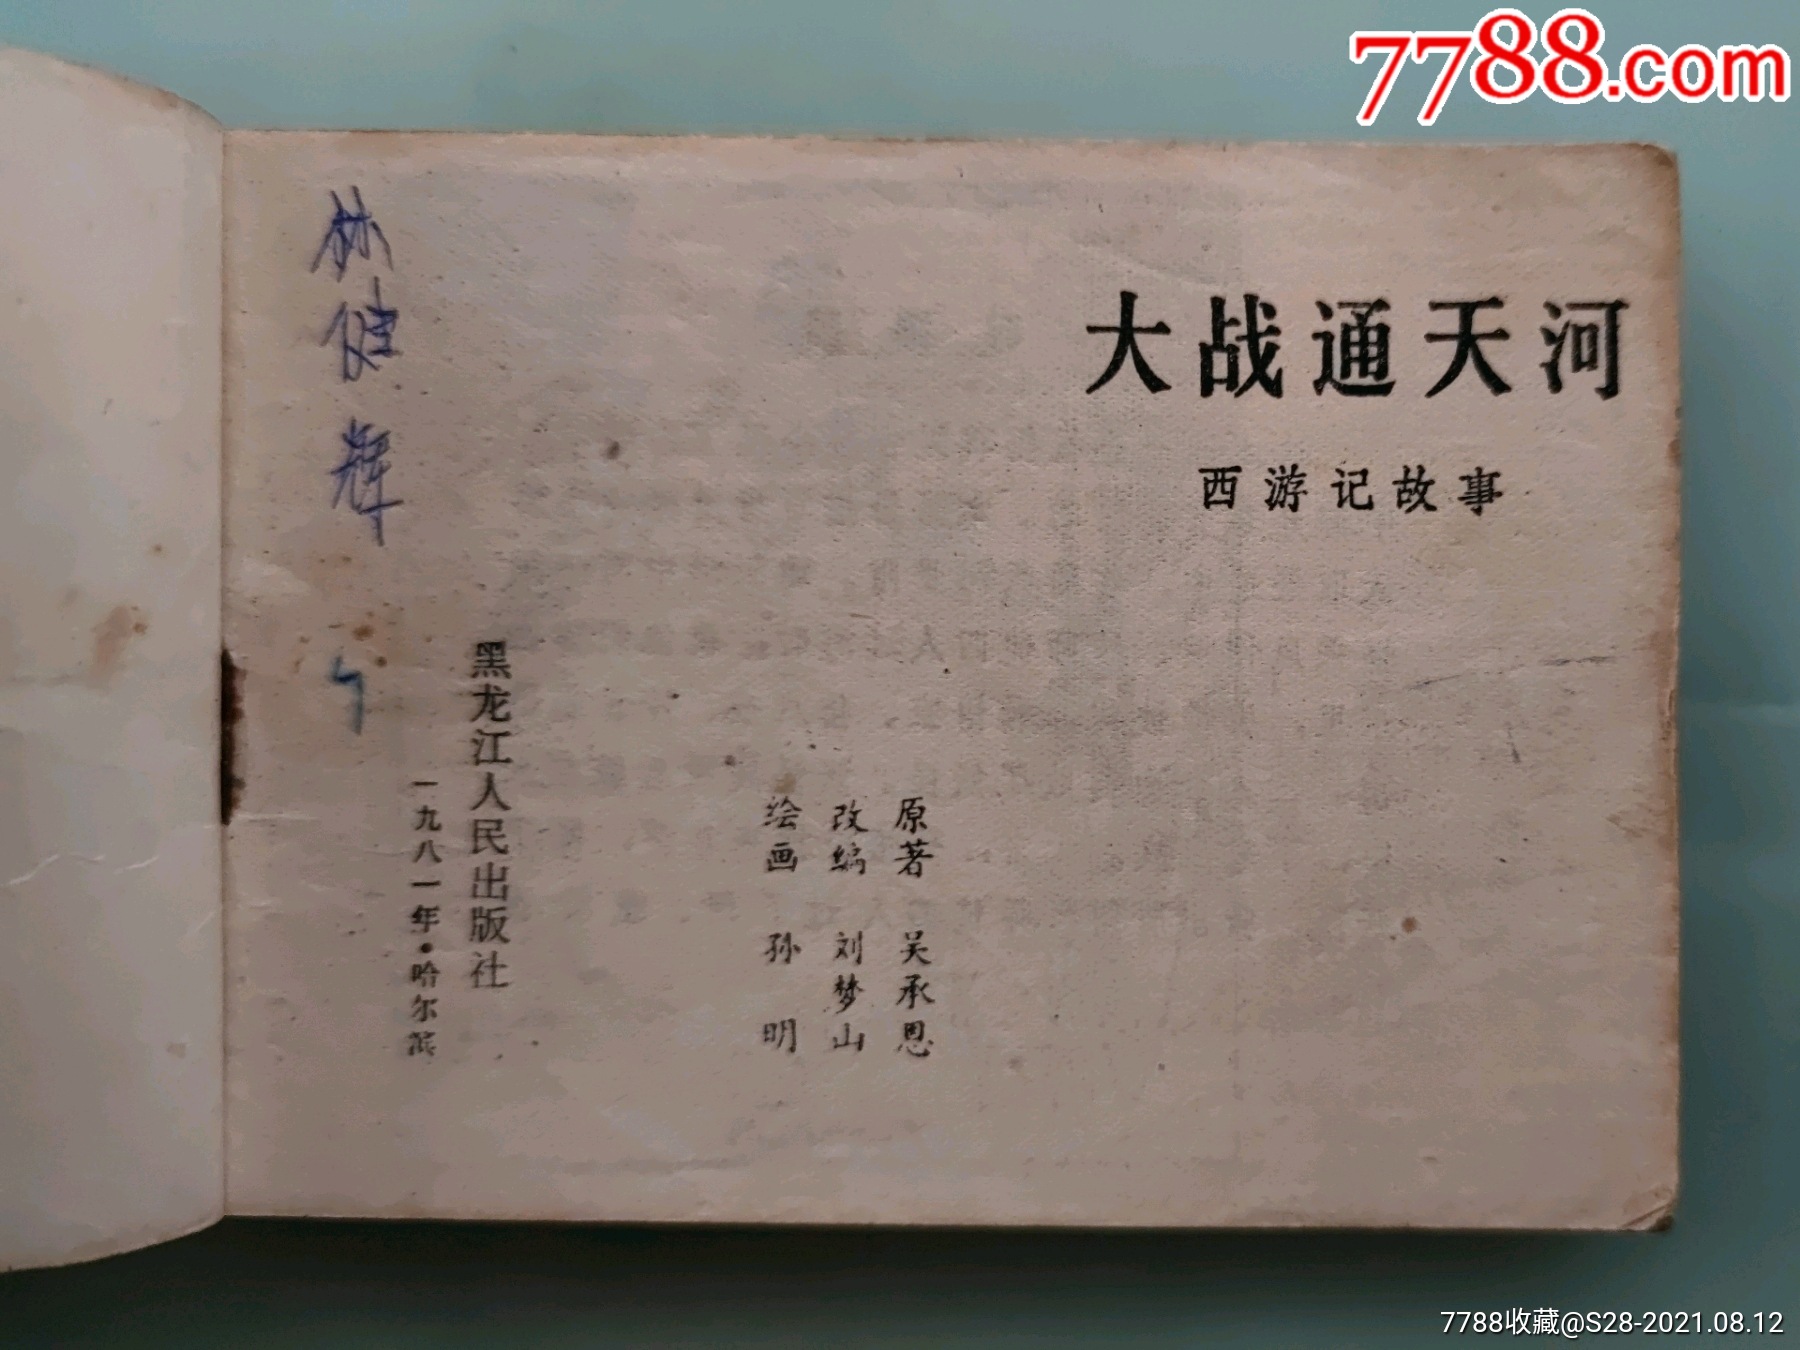 7788.com
大战通天河
西游记故事
原著 吴承恩
改编 刘梦山
绘画 孙明
黑龙江人民出版社
一九八一年·哈尔滨
林健辉
7788收藏@S28-2021.08.12